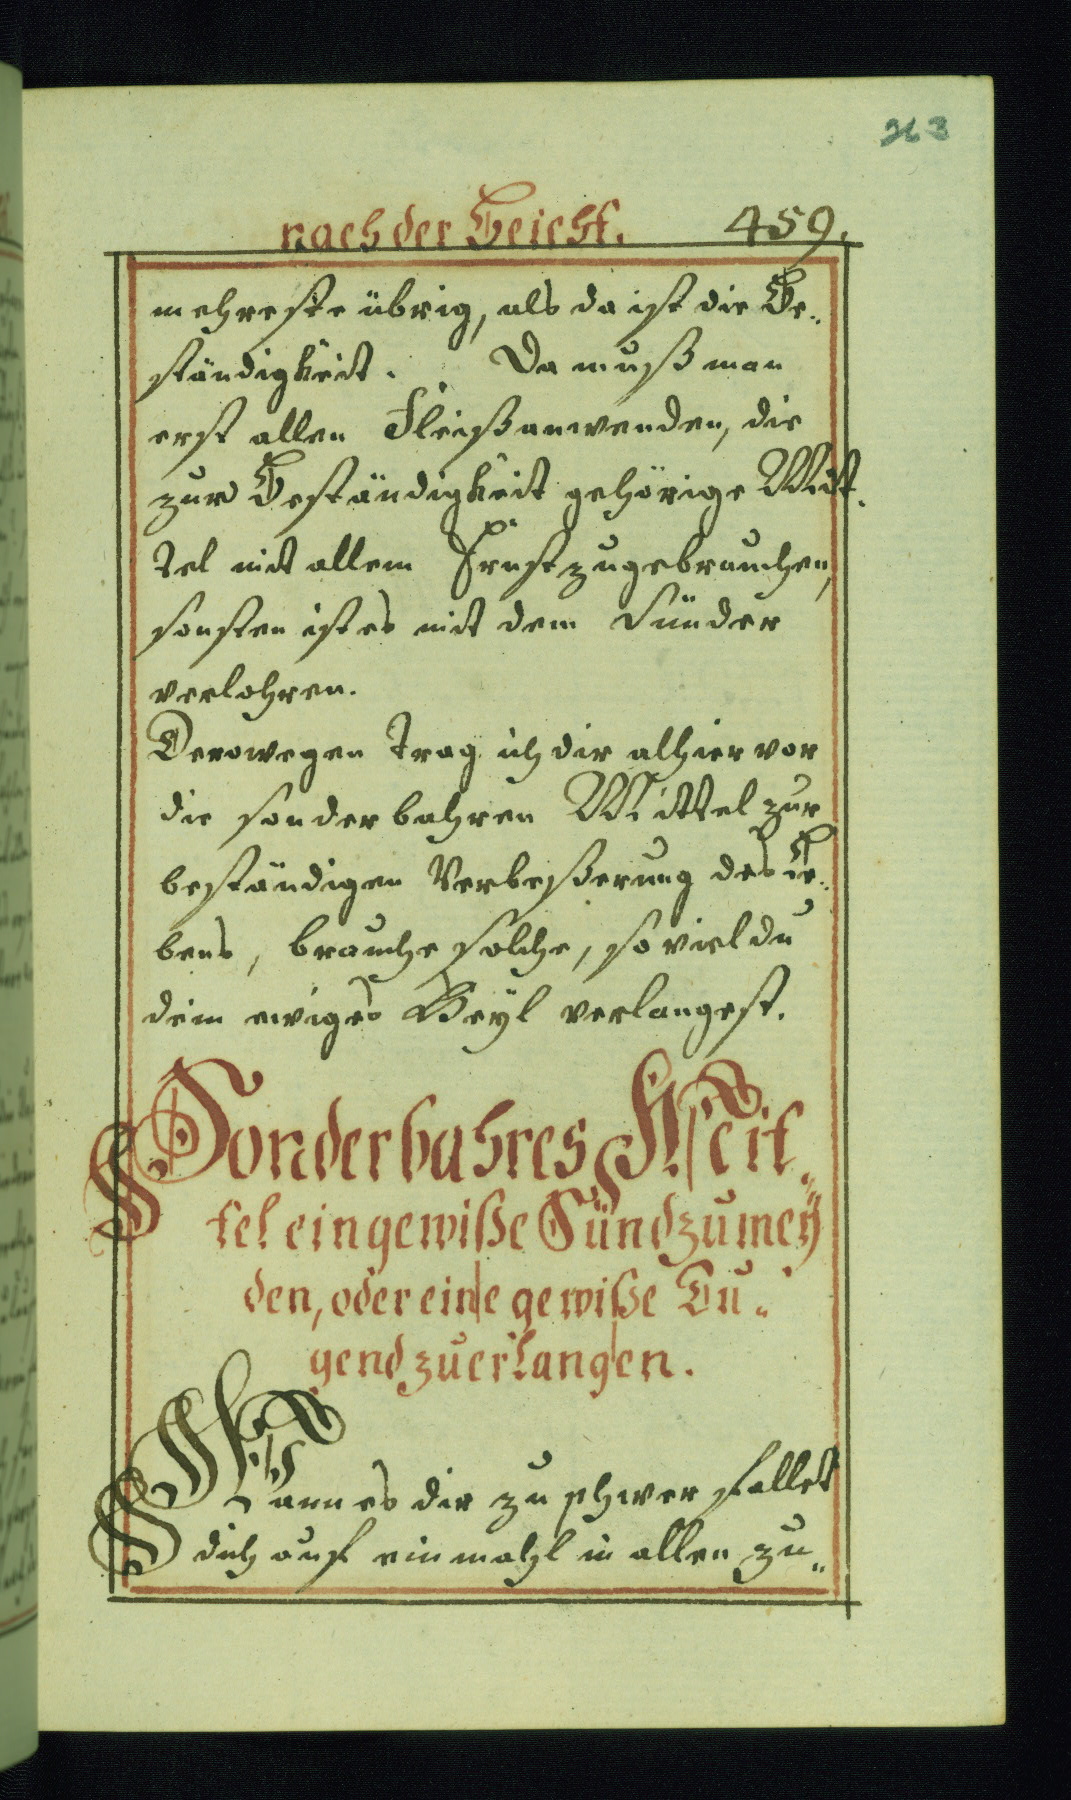 263
nach der Beicht. 459.
mehreste übrig, als da ist die Be„
ständigkeit. Da muß man
erst allen Fleiß anwenden, die
zur Beständigkeit gehörige Mit„
tel mit allem Ernst zugebrauchen,
sonsten ist es mit dem Sünder
verlohren.
Derowegen trag ich dir alhier vor
die sonderbahren Mittel zur
beständigen Verbeßerung des Le„
bens, brauche solche, so viel du
dein ewiges Heyl verlangest.
Sonderbahres Mit„
tel ein gewiße Sünd zu mey
den, oder eine gewiße Tu„
gend zu erlangen.
Wann es dir zu schwer fallet
dich auf einmahl in allen zu„